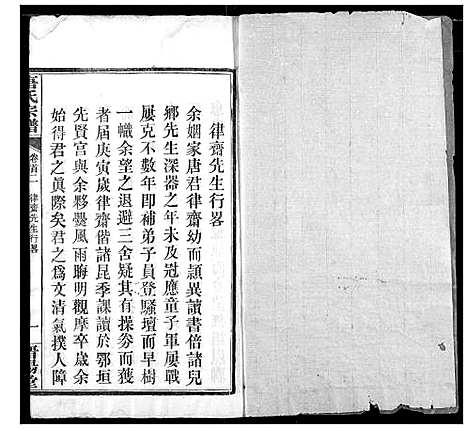 律齋先生行畧
余姻家唐君律齋幼而頴異讀書倍諸兒
鄉先生深器之年未及冠應童子軍屢戰
屢克不數年即補弟子員登騷壇而早樹
一幟余望之退避三舍疑其有操券而獲
者屆庚寅歲律齋偕諸昆季課讀於鄂垣
先賢宮與余夥爨風雨晦明觀摩卒歲余
始得君之眞際矣君之為文清氣撲人障
唐氏宗譜
卷首二
律齋先生行畧
一
晋陽堂